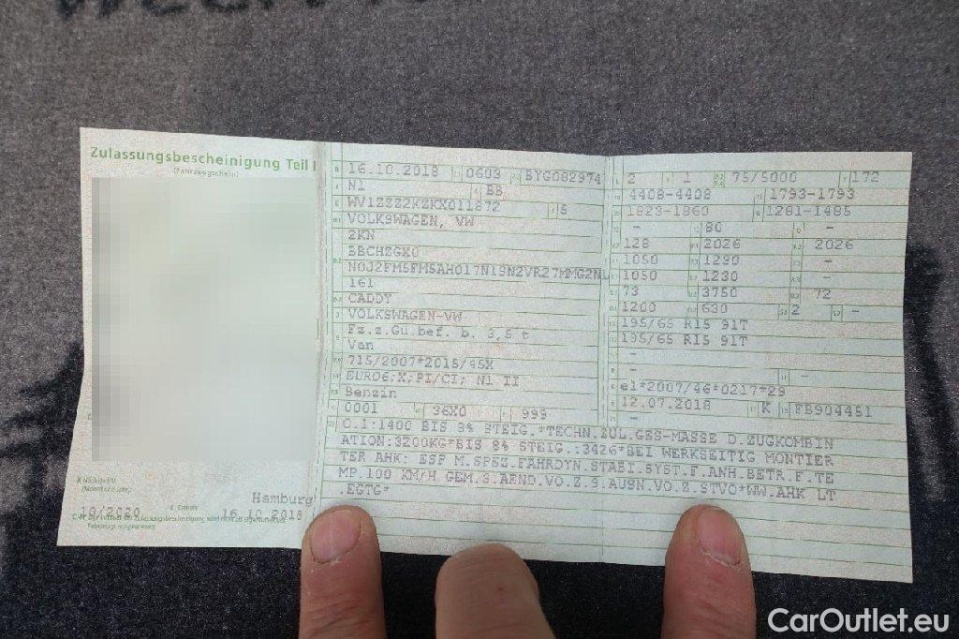 Zulassungsbescheinigung Teil I
(Fahrzeugschein)
Hamburg
10/2020
16.10.2018
16.10.2018 0603 BYG082974
N1 BB
5
VOLKSWAGEN, VW
2KN
161
CADDY
VOLKSWAGEN-VW
Fz.z.Gü.bef. b. 3,5 t
Van
715/2007*2015/45X
EURO6;X;PI/CI; N1 II
Benzin
0001 36X0 999
2 1 75/5000 172
4408-4408 1793-1793
1823-1860 1281-1485
- 80 -
128 2026 2026
1050 -
1050 1230 -
73 3750 72
1200 630 2 -
195/65 R15 91T
195/65 R15 91T
-
- -
e1*2007/46*0217*29
12.07.2018 K FB904451
O.1:1400 BIS 8% STEIG.*TECHN.ZUL.GES-MASSE D.ZUGKOMBIN
ATION:3200KG*BIS 8% STEIG.:3426*BEI WERKSEITIG MONTIER
TER AHK: ESP M.SPEZ.FAHRDYN.STABI.SYST.F.ANH.BETR.F.TE
MP.100 KM/H GEM.9.AEND.VO.Z.9.AUSN.VO.Z.STVO*WW.AHK LT
.EGTG*
CarOutlet.eu